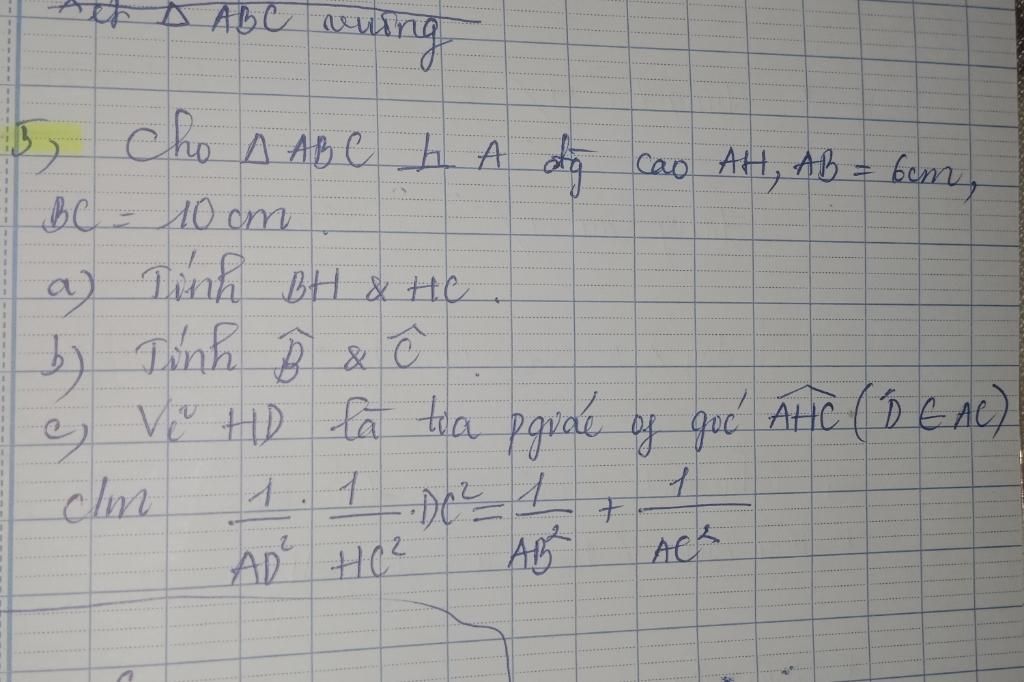 Xét Δ ABC vuông
3) Cho Δ ABC ⊥ A đg cao AH, AB = 6cm,
BC = 10 cm.
a) Tính BH & HC.
b) Tính B̂ & Ĉ.
c) Vẽ HD là tia pgiác of góc AHC (D ∈ AC)
c/m 1/AD² . 1/HC² . DC² = 1/AB² + 1/AC²